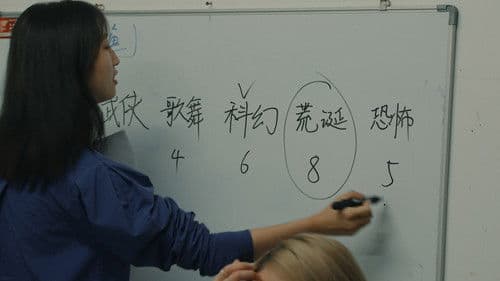 武侠 歌舞 科幻 荒诞 恐怖
4 6 8 5